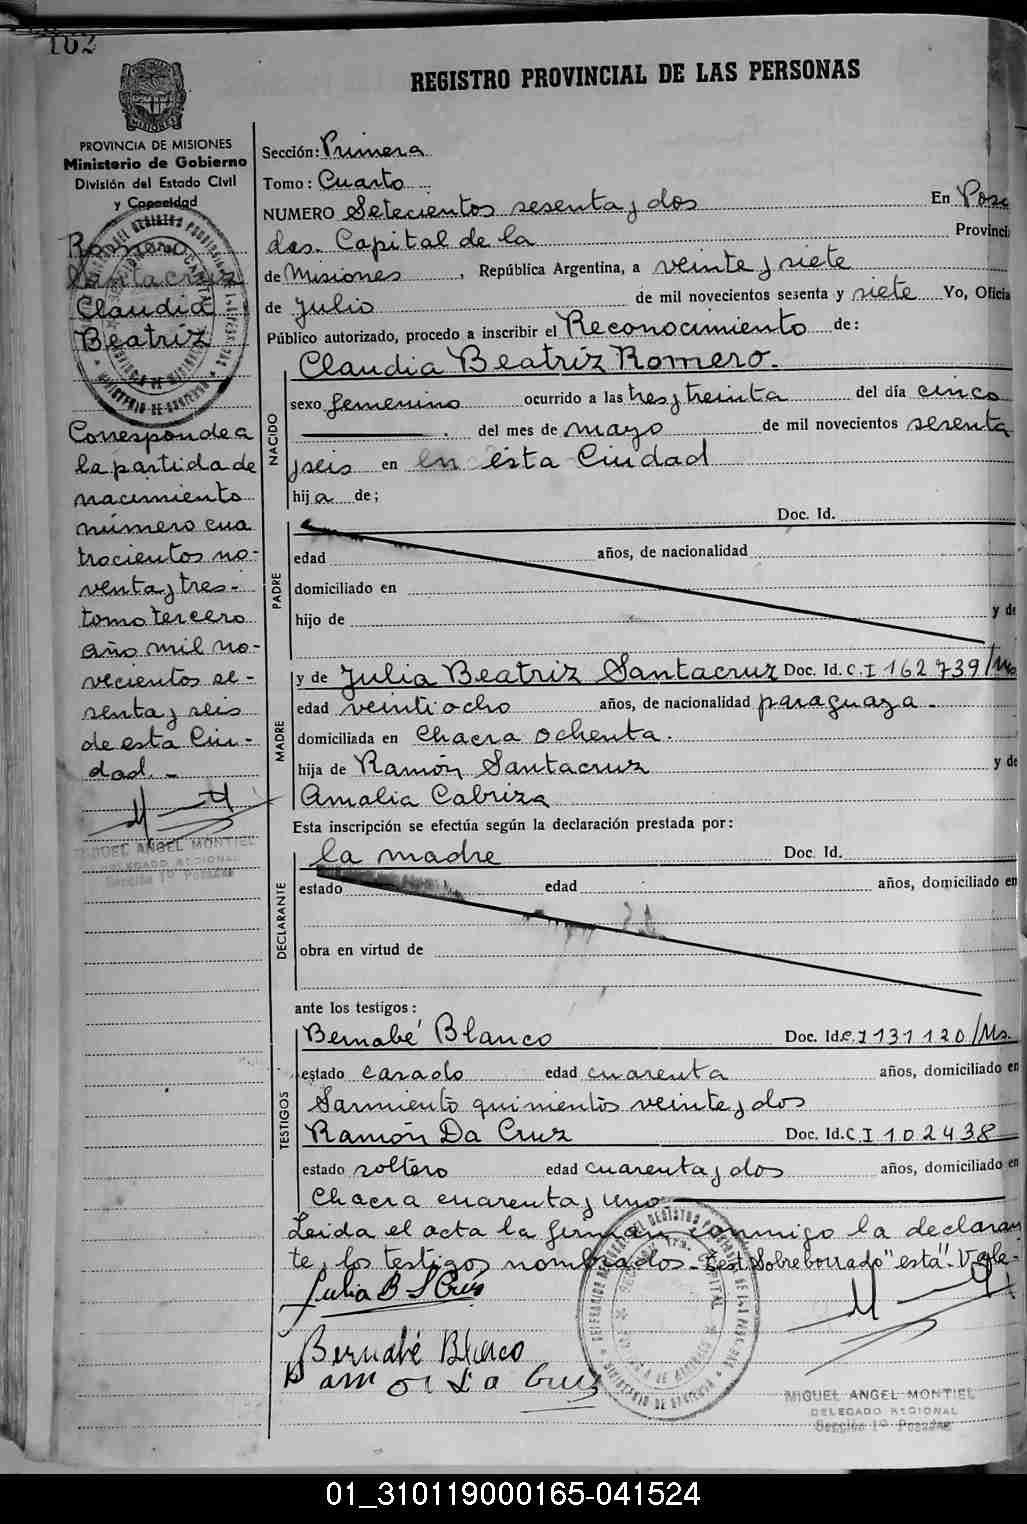 162
MISIONES
PROVINCIA DE MISIONES
Ministerio de Gobierno
División del Estado Civil
y Capacidad
Santacruz
Claudia
Beatríz
Corresponde a
la partida de
nacimiento
número cua
trocientos no-
venta y tres-
tomo tercero
año mil no-
vecientos se-
senta y seis
de esta Ciu-
dad.-
MIGUEL ANGEL MONTIEL
DELEGADO REGIONAL
Sección 1º Posadas
REGISTRO PROVINCIAL DE LAS PERSONAS
Sección: Primera
Tomo: Cuarto
NUMERO Setecientos sesenta y dos En Posa
das. Capital de la Provincia
de Misiones, República Argentina, a veinte y siete
de Julio de mil novecientos sesenta y siete Yo, Oficia
Público autorizado, procedo a inscribir el Reconocimiento de:
NACIDO
Claudia Beatríz Romero.
sexo femenino ocurrido a las tres y treinta del día cinco
. del mes de mayo de mil novecientos sesenta
y seis en en ésta Ciudad
hija de;
PADRE
Doc. Id.
edad años, de nacionalidad
domiciliado en
hijo de y de
MADRE
y de Julia Beatriz Santacruz Doc. Id. C.I 162739/Ms
edad veintiocho años, de nacionalidad paraguaya.
domiciliada en Chacra ochenta.
hija de Ramón Santacruz y de
Amalia Cabriza
Esta inscripción se efectúa según la declaración prestada por:
DECLARANTE
la madre Doc. Id.
estado edad años, domiciliado en
obra en virtud de
ante los testigos:
TESTIGOS
Bernabé Blanco Doc. Id. C.I 131120/Ms.
estado casado edad cuarenta años, domiciliado en
Sarmiento quinientos veinte y dos
Ramón Da Cruz Doc. Id. C I 102438
estado soltero edad cuarenta y dos años, domiciliado en
Chacra cuarenta y uno
Leida el acta la firman conmigo la declaran
te y los testigos nombrados.- Test. Sobreborrado "está". Vale-
Julia B S Cruz
Bernabé Blanco
Ramon Da Cruz
MIGUEL ANGEL MONTIEL
DELEGADO REGIONAL
Sección 1º Posadas
01_310119000165-041524